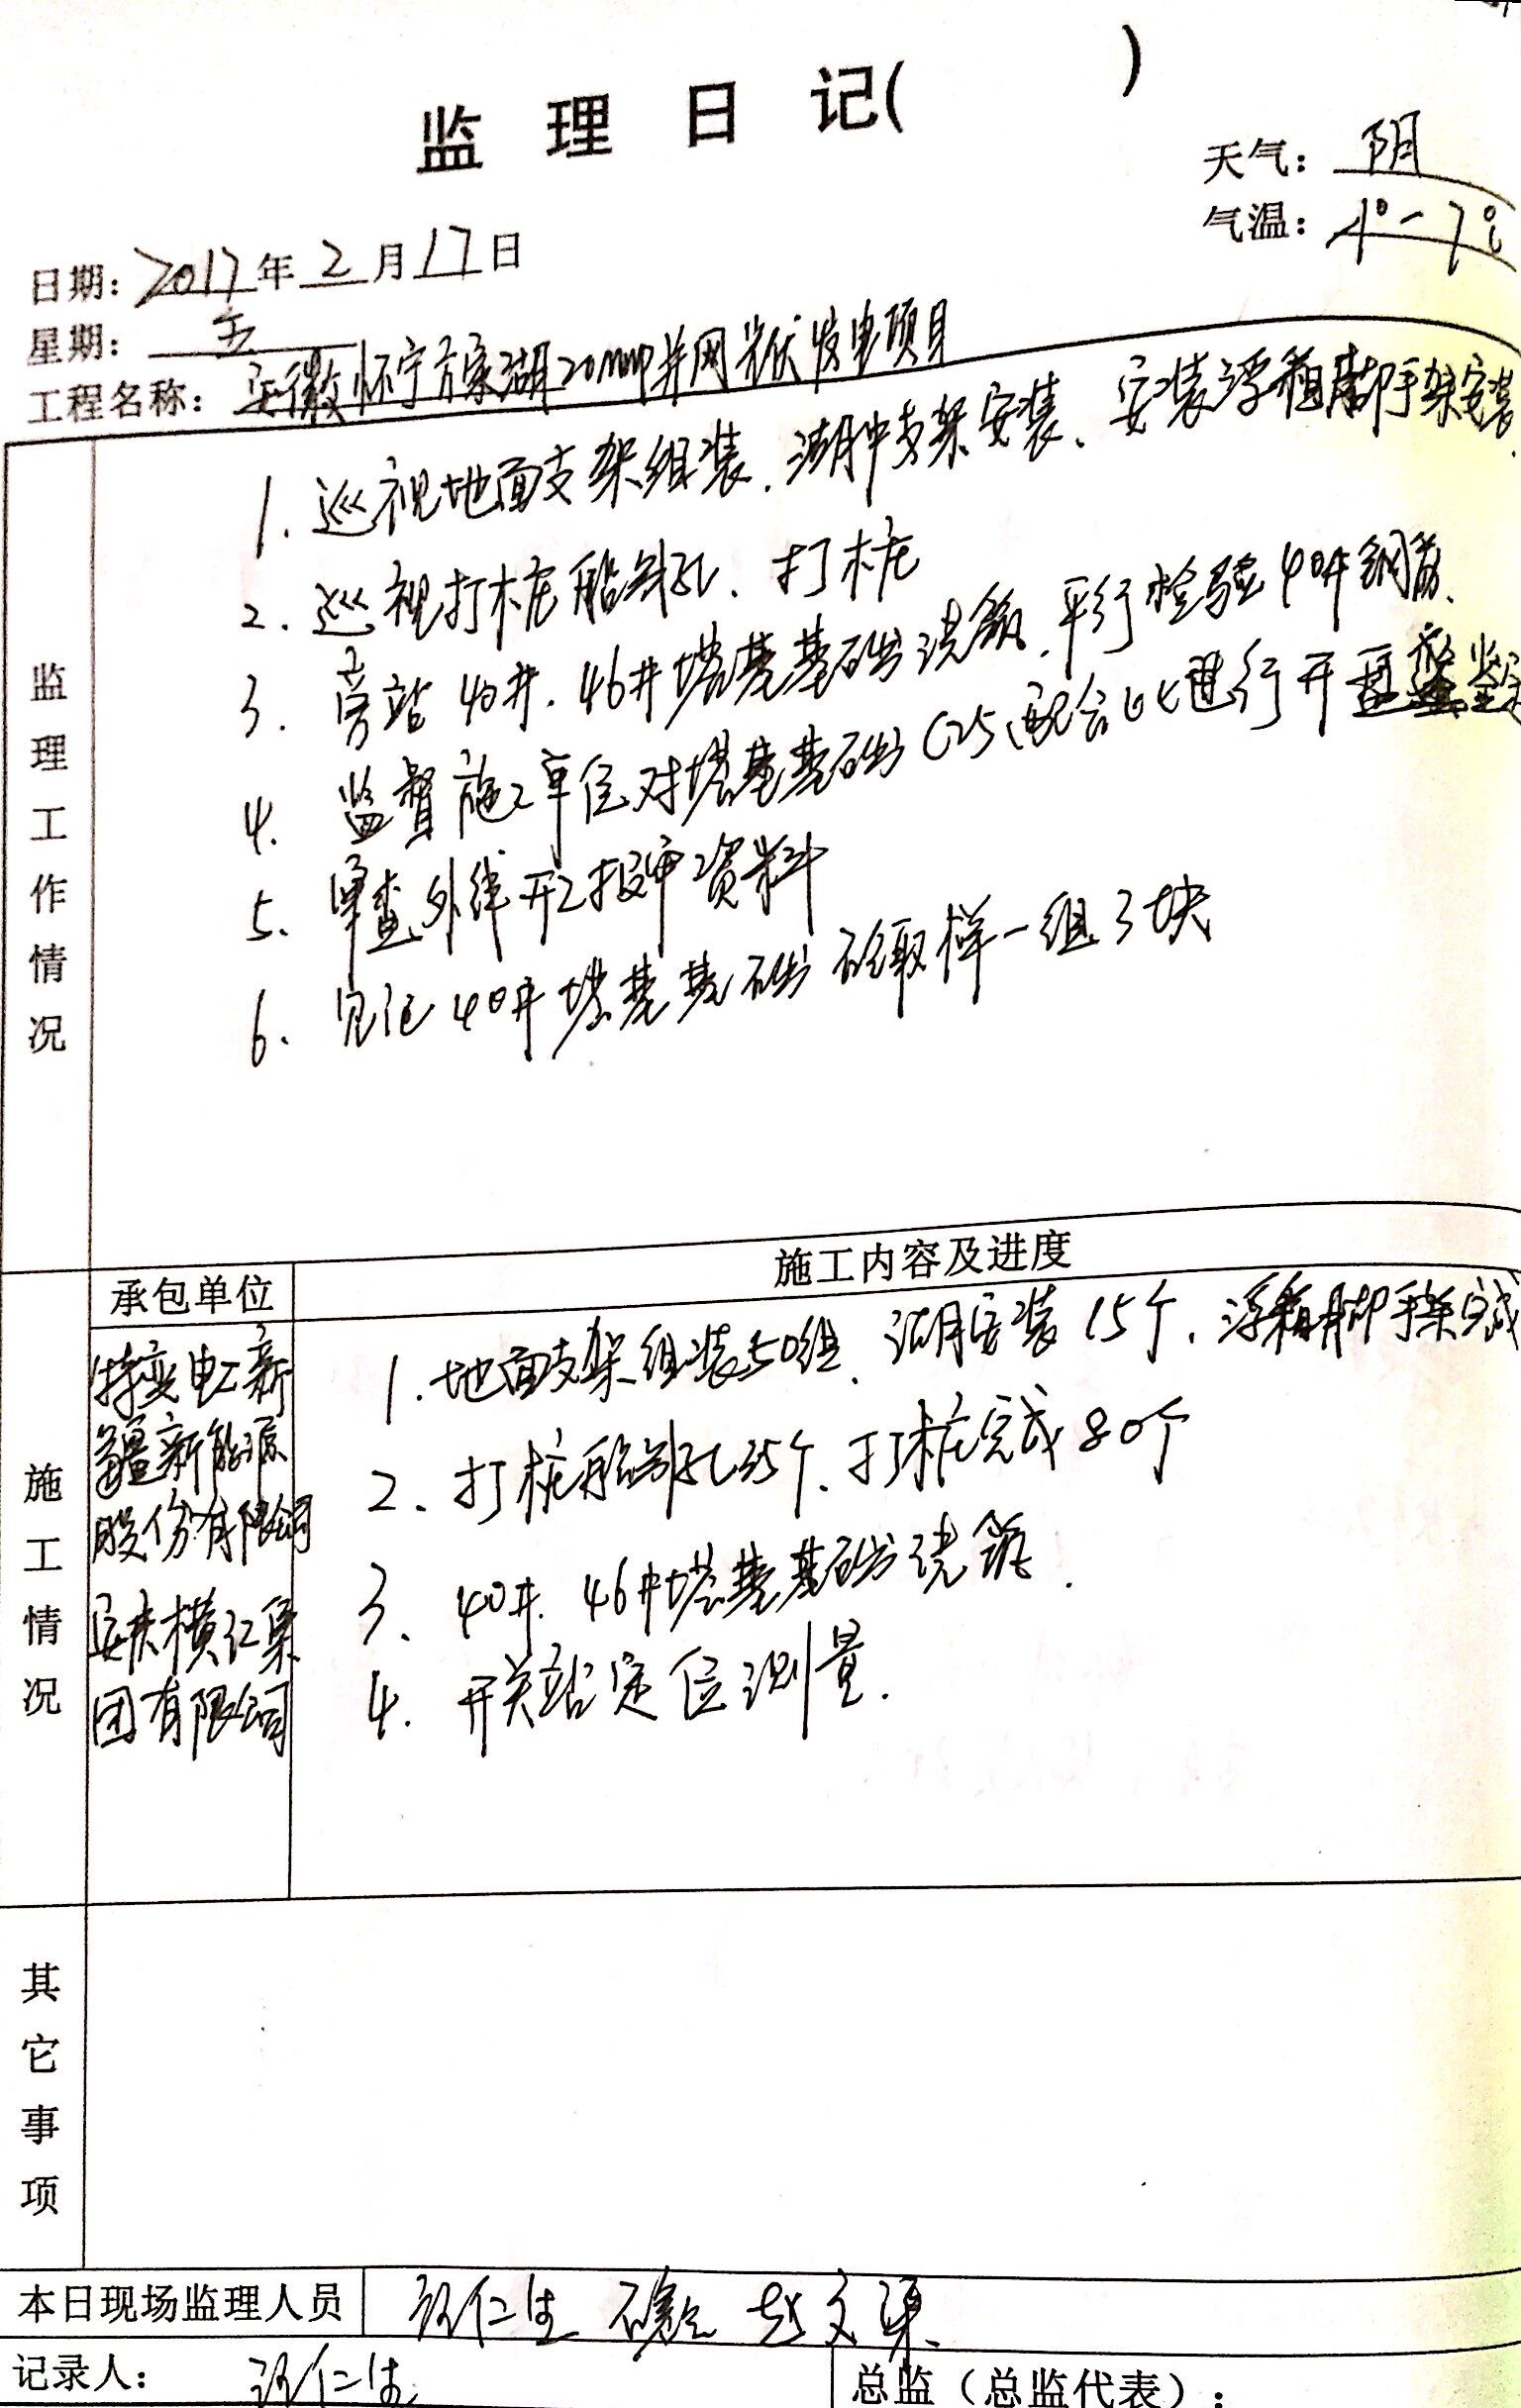 监 理 日 记( )
天气: 阴
气温: 4°-7℃
日期: 2017年2月17日
星期: 五
工程名称: 安徽怀宁方家湖20MWP并网光伏发电项目
监理工作情况
1. 巡视地面支架组装、湖中支架安装、安装浮箱脚手架安装.
2. 巡视打桩船钻孔、打桩
3. 旁站40#、46#塔基基础浇筑、平行检验40#钢筋.
4. 监督施工单位对塔基基础C25配合比进行开盘鉴定
5. 审查外线开工报审资料
6. 见证40#塔基基础砼取样一组3块
施工情况
承包单位
施工内容及进度
特变电工新
疆新能源
股份有限公司
安庆横江集
团有限公司
1. 地面支架组装50组、湖中安装15个、浮箱脚手架完成
2、打桩船钻孔35个、打桩完成80个
3、40#、46#塔基基础浇筑.
4. 开关站定位测量.
其它事项
本日现场监理人员
仁生 赵文
记录人: 仁生
总监（总监代表）: